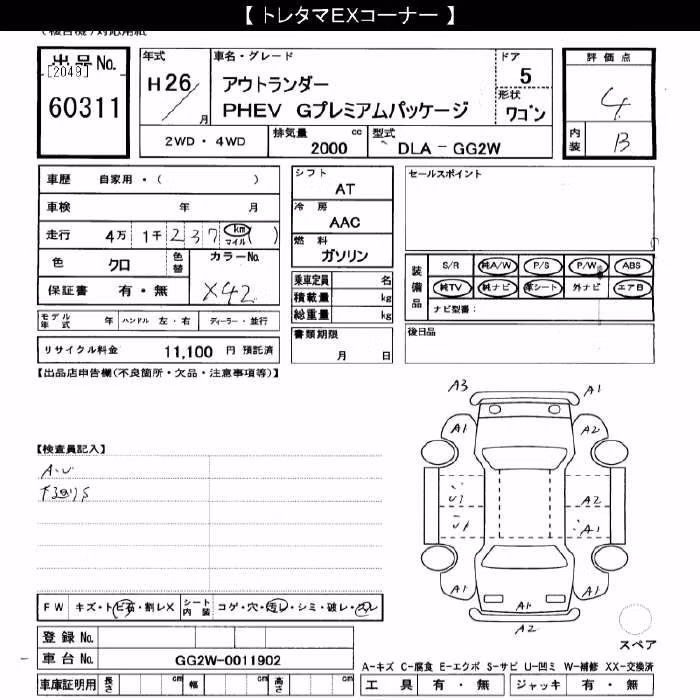 【 トレタマEXコーナー 】
出品 No.
[2049]
60311
年式
H26/
月
車名・グレード
アウトランダー
PHEV Gプレミアムパッケージ
ドア
5
形状
ワゴン
評価点
4
内装
B
2WD・4WD
排気量 cc
2000
型式
DLA - GG2W
車歴 自家用・( )
車検 年 月
走行 4万 1千 237 km マイル ( )
色 クロ
色替
カラーNo.
X42
保証書 有・無
モデル年式 年 ハンドル 左・右 ディーラー・並行
リサイクル料金 11,100 円 預託済
シフト
AT
冷房
AAC
燃料
ガソリン
乗車定員 名
積載量 kg
総重量 kg
書類期限
月 日
セールスポイント
装備品
S/R 純A/W P/S P/W ABS
純TV 純ナビ 革シート 外ナビ エアB
ナビ型番:
後日品
【出品店申告欄(不良箇所・欠品・注意事項等)】
【検査員記入】
A・U
下回りS
A3 A1
A1 A2
U1 A2
A1
A1 A1
A1
A2
スペア
FW キズ・トビ石・割レX
シート内装 コゲ・穴・汚レ・シミ・破レ・スレ
登録 No.
車台 No. GG2W-0011902
車庫証明用 長さ cm 幅 cm 高さ cm
A-キズ C-腐食 E-エクボ S-サビ U-凹ミ W-補修 XX-交換済
工具 有・無 ジャッキ 有・無